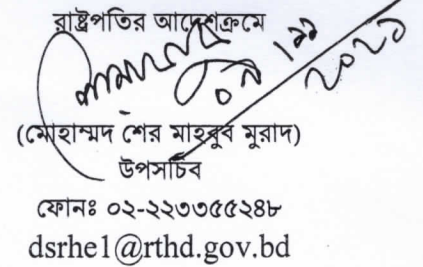 রাষ্ট্রপতির আদেশক্রমে
(মোহাম্মদ শের মাহবুব মুরাদ)
উপসচিব
ফোনঃ ০২-২২৩৩৫৫২৪৮
dsrhe1@rthd.gov.bd